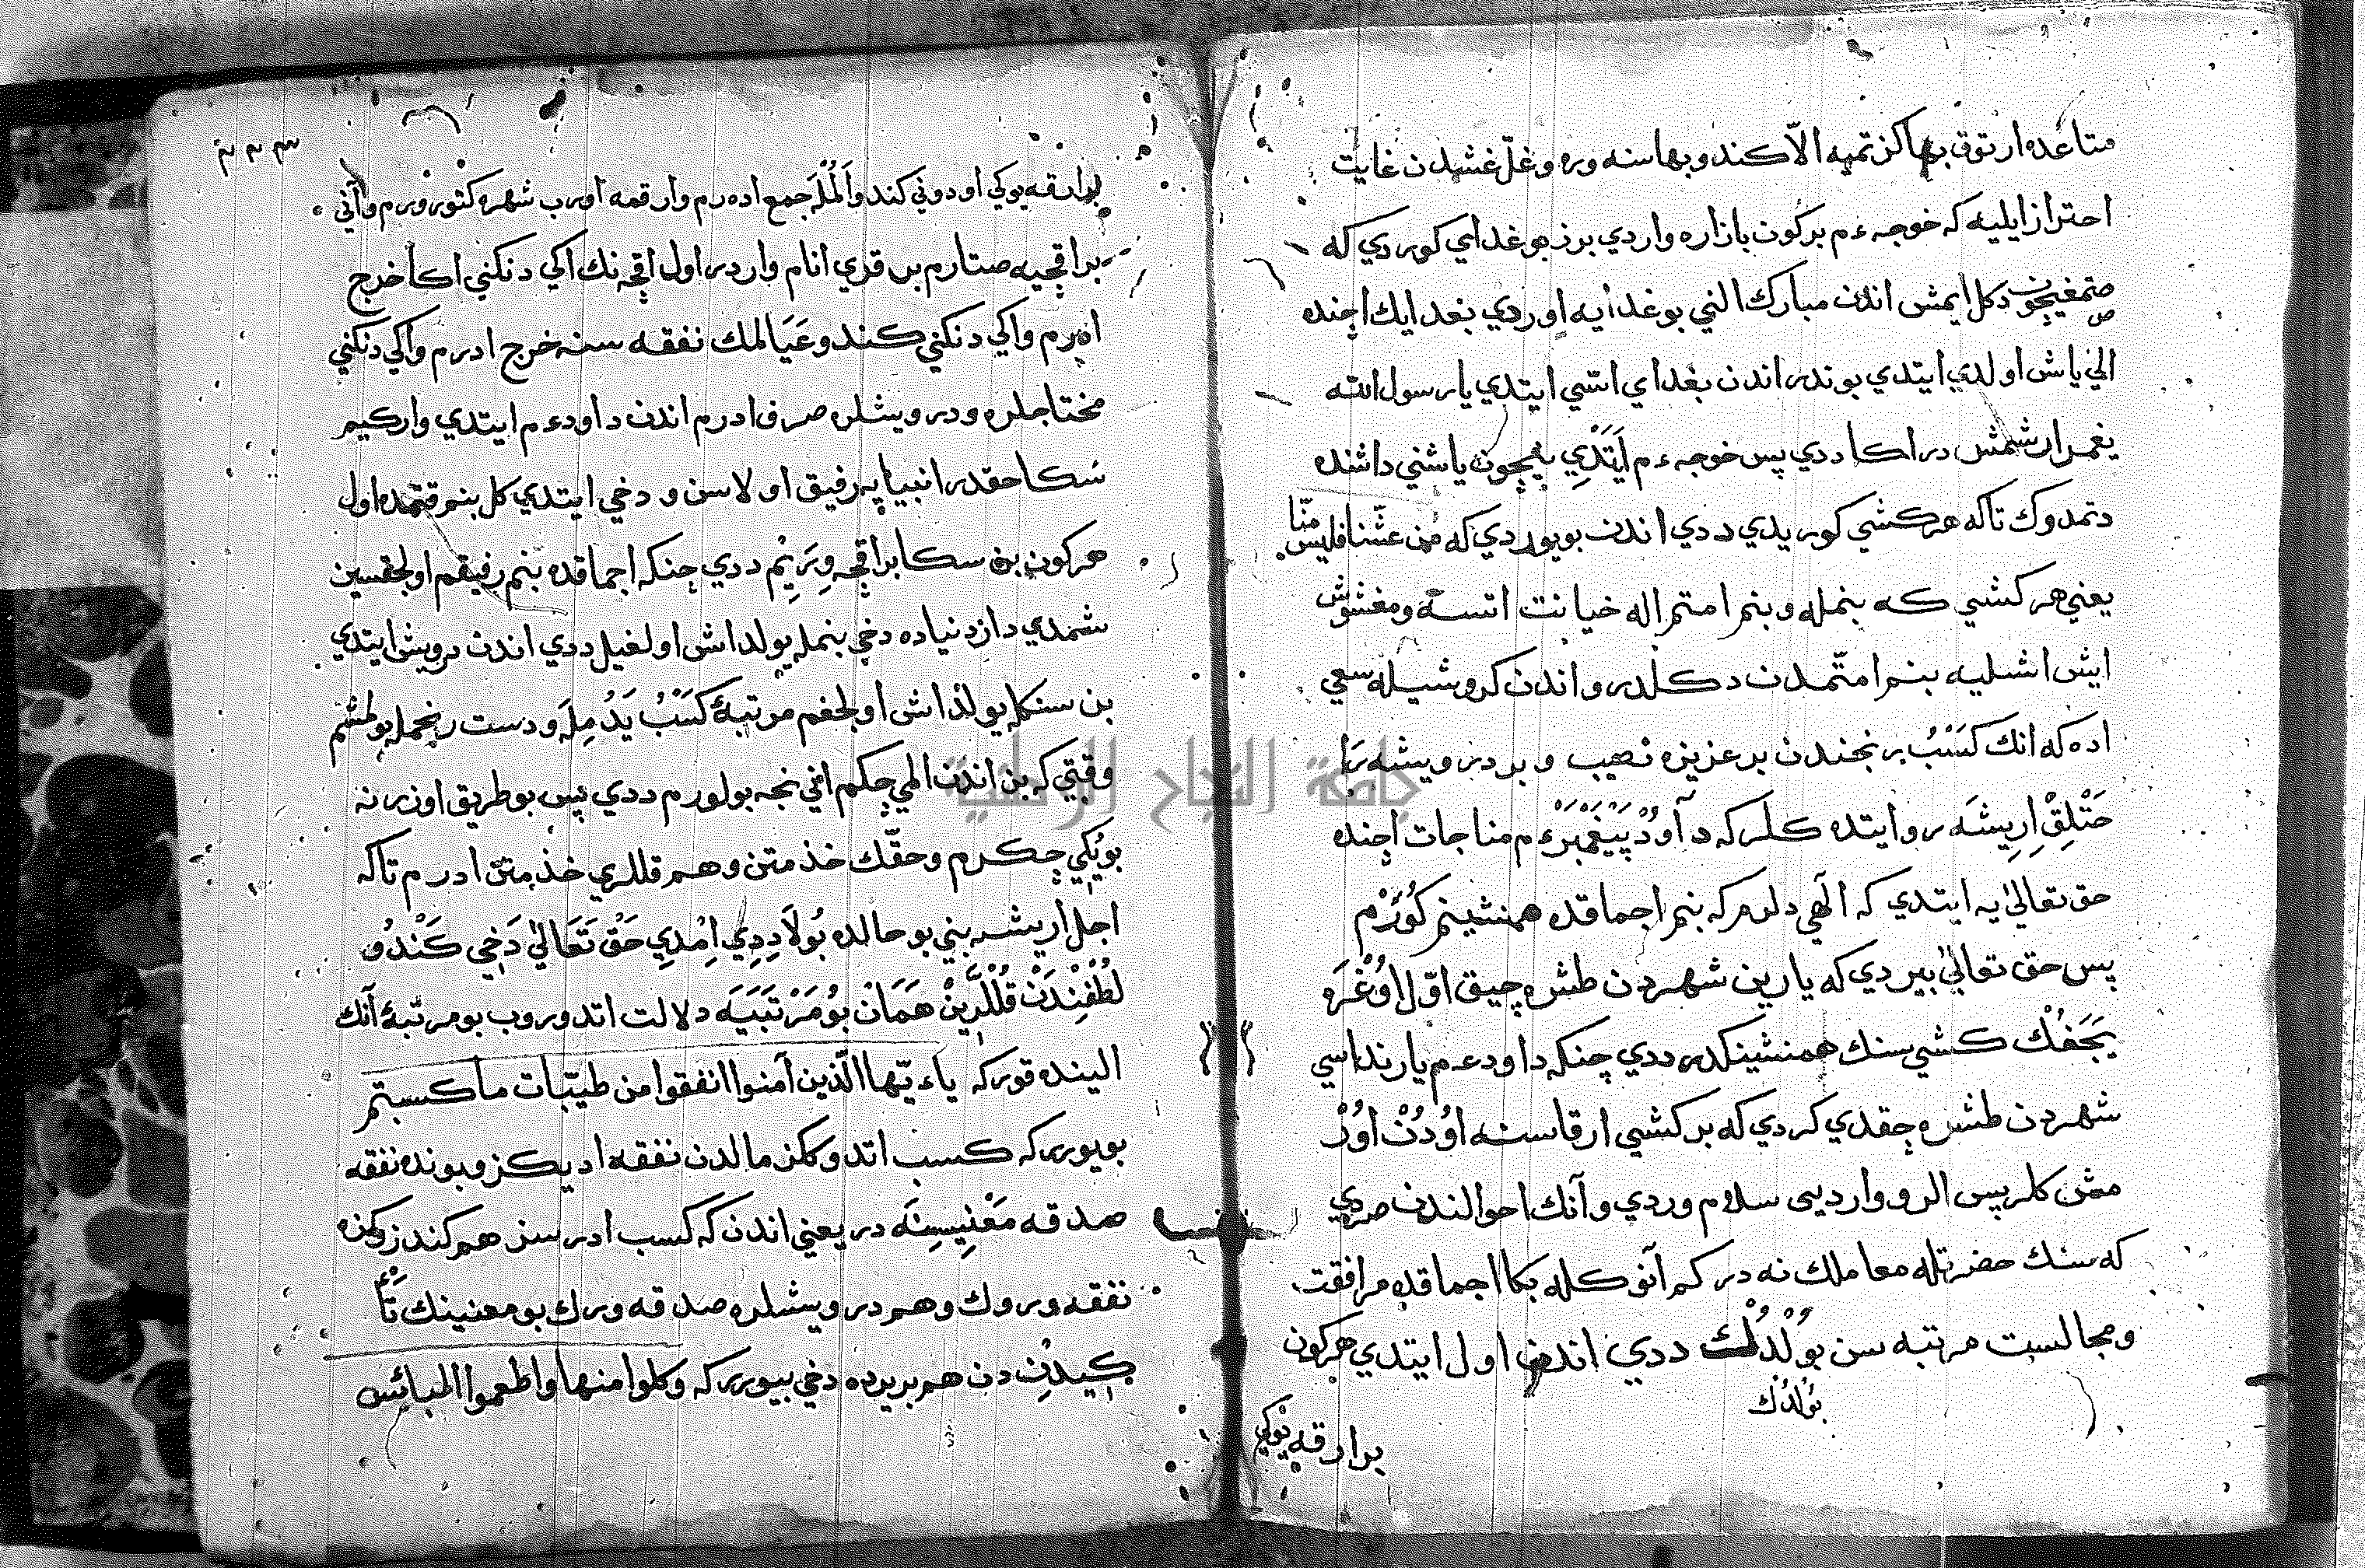 متاعده ارتوق بها كزتميه الاّ كندو بهاسنه ويره وغلّ غشدن غايت
احتراز ايليه كه خوجه ءم بركون بازاره واردي برز بوغداي كوردي كه
صتمغيچون دكل ايمش اندن مبارك الني بوغدايه اوردي بغدايك اچنده
الي ياش اولدي ايتدي بوندر اندن بغداي اتسي ايتدي يا رسول الله
يغمر ارشمش در اكا ددي پس خوجه ءم ايَتدِي نيچون ياشني داشنده
دتمدوك تاكه هركشي كوريدي ددي اندن بويوردي كه من غشّنا فليس منّا
يعني هر كشي كه بنمله وبنم امتم اله خيانت اتسه ومغشوش
ايش اشليه بنم امتّمدن دكلدر واندن كرو شيله سعي
اده كه انك كَسْبُ رنجندن بر عزيزه نصيب وبر درويشه رَا
حَتْلِقْ اِرِيشَه روايتده كلركه دآوُدْ پَيْغَمْبَرْ ءم مناجات اچنده
حق تعالىٰ يه ايتدي كه الٓهي دلرم كه بنم اجماقده همنشينم كُورَرْم
پس حق تعالىٰ بيردي كه يارين شهردن طشره چيق اوّل اوُغْرَه
يَجَغُكْ كشي سنك همنشينكدر ددي چنكه داود ءم يارنداسي
شهردن طشره چقدي كردي كه بر كشي ارقاسنه اوُدُنْ اوُرْ
مش كلر پس الرو وارديى سلام وردي وآنك احوالندن صردي
كه سنك حضرتله معاملك نه در كم آنوكله بكا اجماقده مرافقت
ومجالست مرتبه سن بُولْدُكْ ددي اندن اول ايتدي هركون
بُولدُك
بر ارقه يوكي
بر ارقه يوكي اودوني كندو اَلُمْلَه جمع ادەرم وارقمه اورب شهره كتورورم وآني
بر اقچيه صتارم بر قري انام واردر اول اقچه نك اكي دنكني اكا خرج
ادرم واكي دنكني كندو عَيَالمك نفقه سنه خرج ادرم واكي دنكني
محتاجلره ودرويشلره صرف ادرم اندن داود ءم ايتدي واركيم
سكا حقدر انبيايه رفيق اولاسن ودخي ايتدي كل بنم قتمده اول
هركون بن سكا بر اقچه وِرَيِمْ ددي چنكه اجماقده بنم رفيقم اولجقسين
شمدي دار دنياده دخي بنمله يولداش اولغيل ددي اندن درويش ايتدي
بن سنكله يولداش اولجغم مرتبهٔ كَسْبُ يَدُ مِلَه ودست رنجمله بولمشم
وقتي كه بن اندن المي چكم اني نجه بولورم ددي پس بو طريق اوزرنه
بويُكي چكرم وحقّك خذمتن وهم قللري خذمتن ادرم تاكه
اجل اريشه بني بو حالده بُولاَ دِدِي اِمْدِي حَقْ تَعَالىٰ دَخِي كَنْدُو
لُطْفِنْدَنْ قُلْلَرِينْ هَمَانْ بُو مَرْتَبَيَه دلالت اتدو وروب بو مرتبهٔ آنك
النده قوركه ياءيّها الّذين آمنوا انفقوا من طيّبات ما كسبتم
بويوررکه كسب اتدوكمز مالدن نفقه اديكز وبونده نفقه
صدقه مَعْنِيسِنَه در يعني اندن كه كسب ادرسز هم كندزكزه
نفقه وروك وهم درويشلره صدقه ورك بو معنينك تَأْ
كِيدِنْ دن هم بر يرده دخي بيوررکه وكلوا منها واطعموا البائس
جامعة النجاح الوطنية